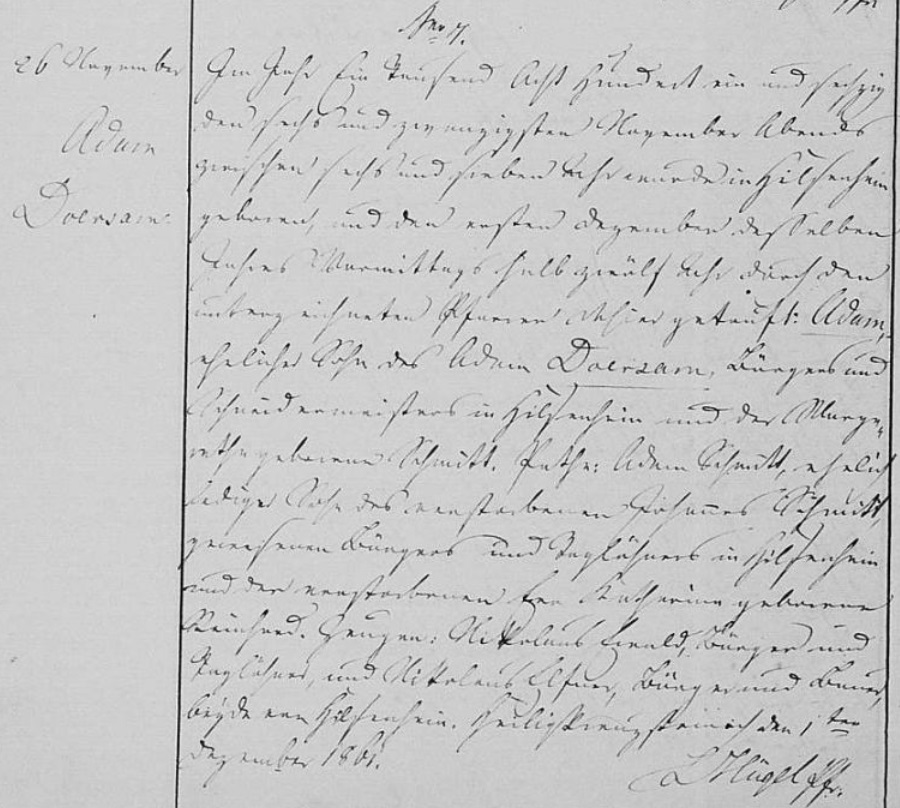 Nro 7.
26 November
Adam
Doersam.
Im Jahr Ein Tausend Acht Hundert ein und sechzig
den sechs und zwanzigsten November Abends
zwischen sechs und sieben Uhr wurde in Hilsenhein
geboren, und den ersten Dezember desselben
Jahres Vormittags halb zwölf Uhr durch den
unterzeichneten Pfarrer dahier getauft: Adam,
ehelicher Sohn des Adam Doersam, Bürgers und
Schneidermeisters in Hilsenhein und der Marga-
retha geborene Schmitt. Pathe: Adam Schmitt, ehelich
lediger Sohn des verstorbenen Johannes Schmitt,
gewesenen Bürgers und Taglöhners in Hilsenhein
und der verstorbenen Katharina geborene
Reinhard. Zeugen: Nikolaus Ewald, Bürger und
Taglöhner, und Nikolaus Elfner, Bürger und Bauer,
beyde von Hilsenhein. Heiligkreuzsteinach den 1ten
Dezember 1861.
L Hügel Pfr.